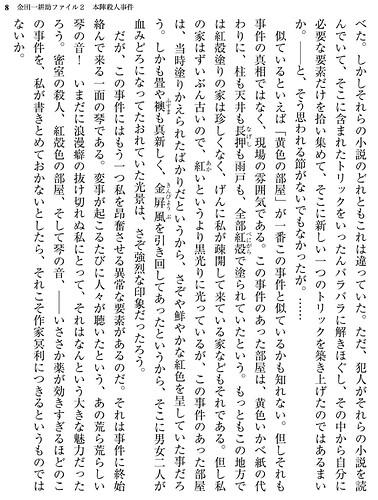 8 金田一耕助ファイル2 本陣殺人事件
べた。しかしそれらの小説のどれともこれは違っていた。ただ、犯人がそれらの小説を読
んでいて、そこに含まれたトリックをいったんバラバラに解きほぐし、その中から自分に
必要な要素だけを拾い集めて、そこに新しい一つのトリックを築き上げたのではあるまい
か。――と、そう思われる節がないでもなかったが。……
似ているといえば「黄色の部屋」が一番この事件と似ているかも知れない。但しそれも
事件の真相ではなく、現場の雰囲気である。この事件のあった部屋は、黄色いかべ紙の代
わりに、柱も天井も長押も雨戸も、全部紅殻で塗られていたという。もっともこの地方で
は紅殻塗りの家は珍しくなく、げんに私が疎開して来ている家などもそれである。但し私
の家はずいぶん古いので、紅いというより黒光りに光っているが、この事件のあった部屋
は、当時塗りかえられたばかりだというから、さぞや鮮やかな紅色を呈していた事だろ
う。しかも畳や襖も真新しく、金屏風を引き回してあったというから、そこに男女二人が
血みどろになってたおれていた光景は、さぞ強烈な印象だったろう。
だが、この事件にはもう一つ私を昂奮させる異常な要素があるのだ。それは事件に終始
絡んで来る一面の琴である。変事が起こるたびに人々が聴いたという、あの荒ら荒らしい
琴の音！ いまだに浪漫癖の抜け切れぬ私にとって、それはなんという大きな魅力だった
ろう。密室の殺人、紅殻色の部屋、そして琴の音、――いささか薬が効きすぎるほどのこ
の事件を、私が書きとめておかないとしたら、それこそ作家冥利につきるというものでは
ないか。